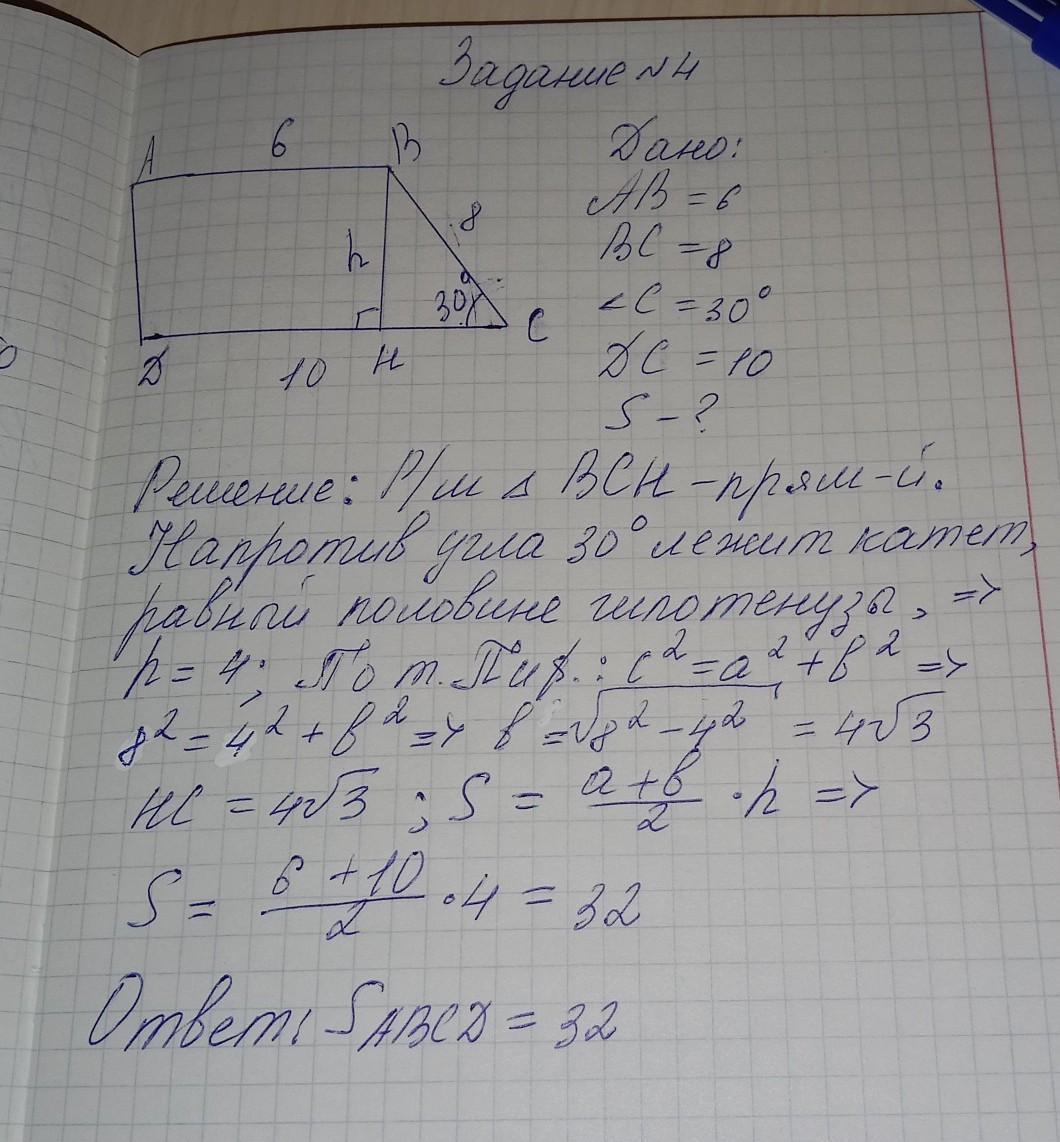 Задание №4
A 6 B
h 8
30°
Д 10 H C
Дано:
AB = 6
BC = 8
∠C = 30°
ДC = 10
S - ?
Решение: Р/м Δ BCH - прям-й.
Напротив угла 30° лежит катет,
равный половине гипотенузы, =>
h = 4; По т. Пиф.: c² = a² + b² =>
8² = 4² + b² => b = √8² - 4² = 4√3
HC = 4√3 ; S = a + b / 2 · h =>
S = 6 + 10 / 2 · 4 = 32
Ответ: SABCД = 32